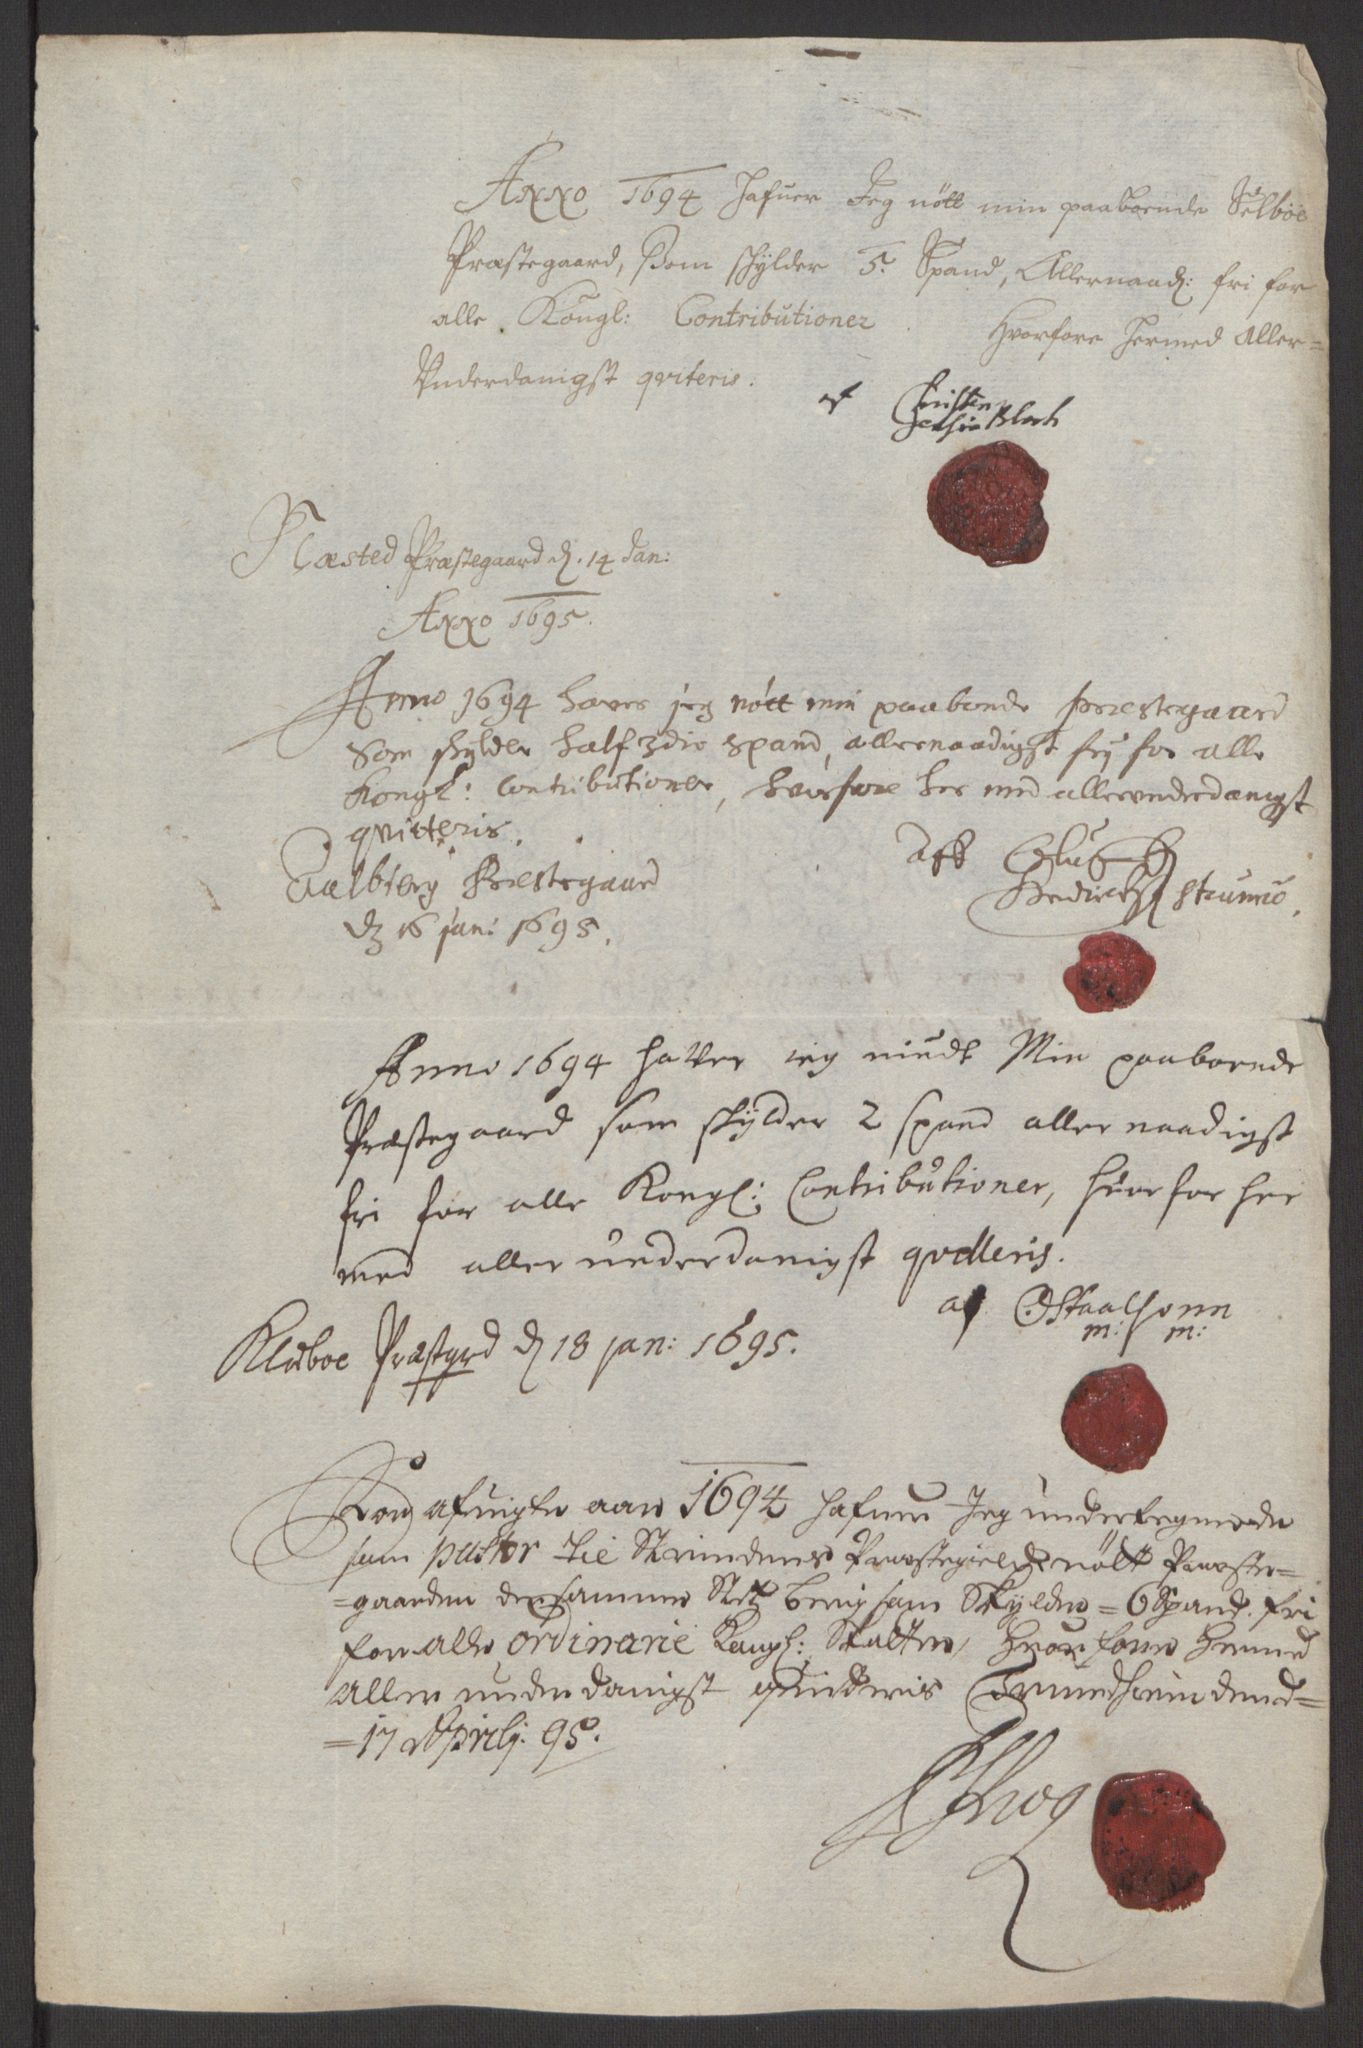 Anno 1694 hafuer Jeg nött min paaboende Selboe
Præstegaard, Som schÿlder 5. Spand, Allernaad: fri for
alle Kongl: Contributioner Hvorfore hermed Aller=
Vnderdanigst qviteris.
af Christen
Jensøn Bloch
Næsted Præstegaard d. 14 Jan:
Anno 1695.
Anno 1694 haver jeg nött min paaboende præstegaard
Som skylder half 3die Spand, allernaadigst frj for alle
Kongl: Contributioner, hvorfore her med allerunderdanigst
qvitteris.
Aff Oluf
Hendrichs: Strumb.
Aalbierg Præstegaard
d 16 Jan: 1695.
Anno 1694 haver ieg niudt Min paaboende
Præstegaard som skylder 2 spand allernaadigst
fri for alle Kongl: Contributioner, huorfor her
med allerunderdanigst qvitteris.
af O Staalsonn
m: m:
Klæboe Præstgrd d 18 Jan: 1695.
For afvigte aar 1694 hafuer Jeg undertegnede
som pastor til Strindens Præstegield nött Præste=
=gaarden der samme Stæd Berg som Skylder = 6 Spand. fri
for alle ordinarie Kongl: Skatter, huorfore hermed
aller underdanigst quitteris Trundhiem dend=
=17 Aprilj. 95.